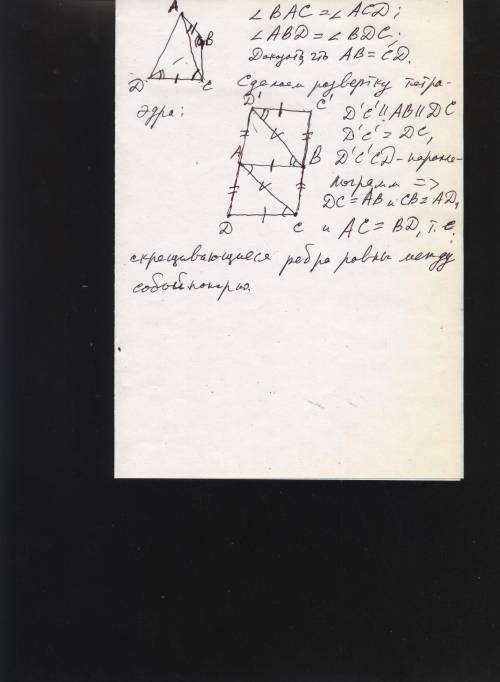 ∠BAC = ∠ACD;
∠ABD = ∠BDC,
Доказать, что AB = CD.
Сделаем развертку тетра-
эдра:
A
B
D
C
D'
C'
A
B
D
C
D'C' ∥ AB ∥ DC
D'C' = DC,
D'C'CD - паралле-
лограмм =>
DC = AB и CB = AD,
и AC = BD, т.е.
скрещивающиеся ребра равны между
собой попарно.